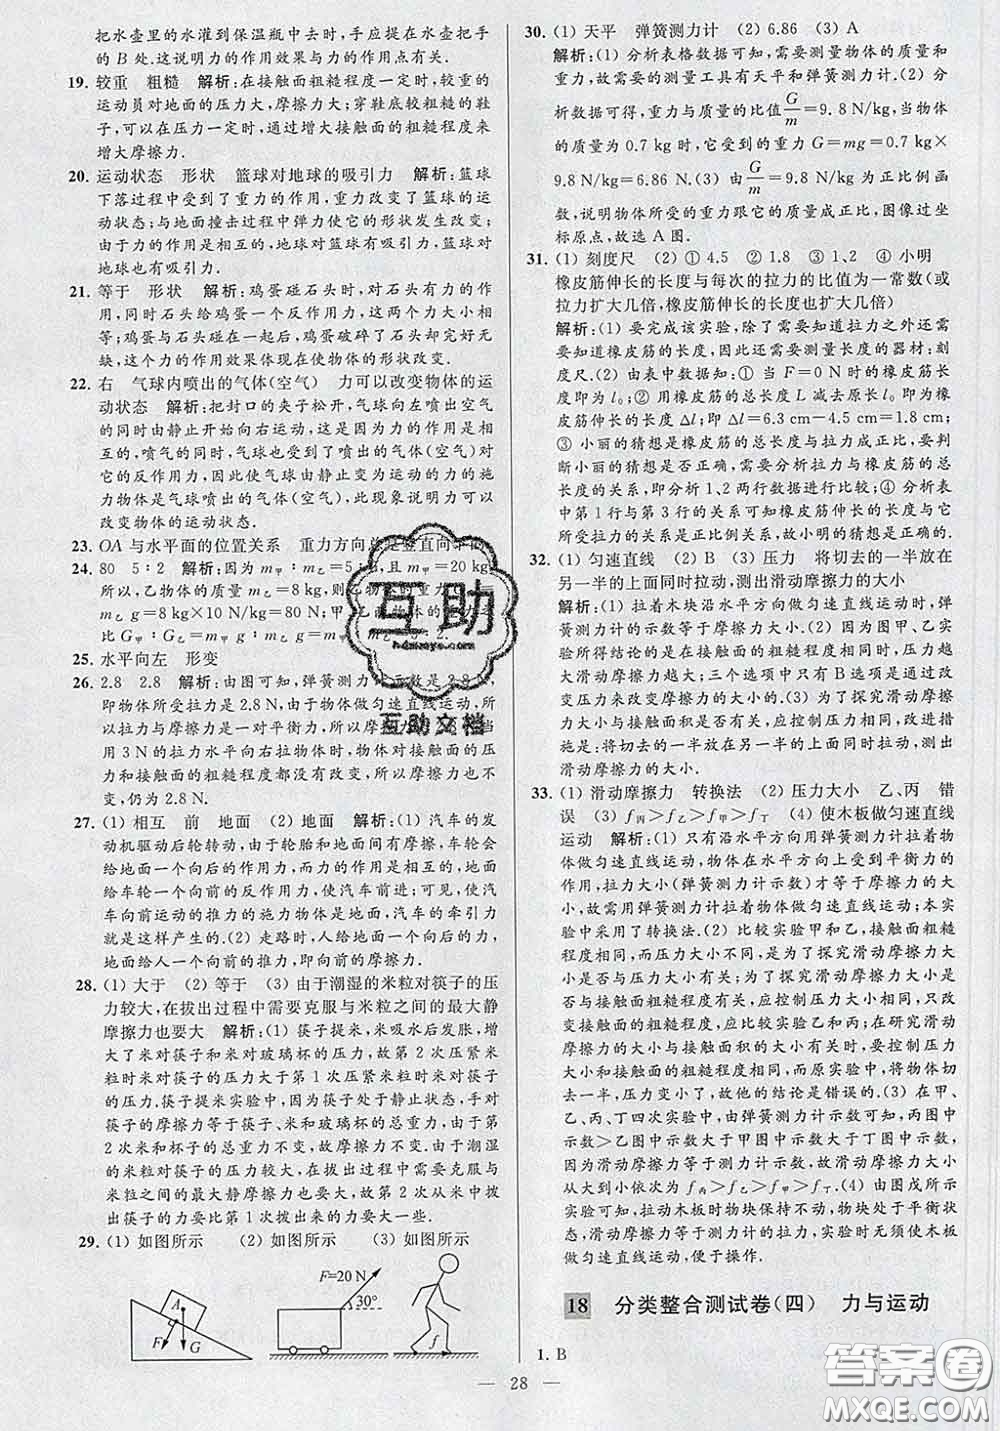 把水壶里的水灌到保温瓶中去时,手应提在水壶把手
的 B 处.这说明力的作用效果与力的作用点有关.
19. 较重 粗糙 解析:在接触面粗糙程度一定时,较重的
运动员对地面的压力大,摩擦力大;穿鞋底较粗糙的鞋
子,可以在压力一定时,通过增大接触面的粗糙程度来
增大摩擦力.
20. 运动状态 形状 篮球对地球的吸引力 解析:篮球
下落过程中受到了重力的作用,重力改变了篮球的运
动状态;与地面撞击过程中弹力使它的形状发生改变;
由于力的作用是相互的,地球对篮球有吸引力,篮球对
地球也有吸引力.
21. 等于 形状 解析:鸡蛋碰石头时,对石头有力的作
用,同时石头给鸡蛋一个反作用力,这两个力大小相
等;鸡蛋与石头碰在一起后,鸡蛋破碎了石头却完好无
缺,这个力的作用效果使物体的形状改变.
22. 右 气球内喷出的气体(空气) 力可以改变物体的运
动状态 解析:把封口的夹子松开,气球向左喷出空气
的同时由静止开始向右运动,这是因为力的作用是相
互的,喷气的同时,气球也受到了喷出的气体(空气)对
它的反作用力,因此使气球由静止变为运动的力的施
力物体是气球喷出的气体(空气),此现象说明力可以
改变物体的运动状态.
23. OA 与水平面的位置关系 重力方向总是竖直向下的
24. 80 5∶2 解析:因为 m甲∶m乙=5∶2,且 m甲=20 kg,
所以,乙物体的质量 m乙=8 kg,乙物体的重力 G乙=
m乙 g=8 kg×10 N/kg=80 N;甲、乙两物体的重力之
比 G甲∶G乙=m甲 g∶m乙 g=m甲∶m乙=5∶2.
25. 水平向左 形变
26. 2.8 2.8 解析:由图可知,弹簧测力计示数是 2.8 N,
即物体所受拉力是 2.8 N,由于物体做匀速直线运动,
所以拉力与摩擦力是一对平衡力,摩擦力
用 3 N 的拉力水平向右拉物体时,物体对接触面的压
力和接触面的粗糙程度都没有改变,所以摩擦力也不
变,仍为 2.8 N.
27. (1) 相互 前 地面 (2) 地面 解析:(1) 汽车的发
动机驱动后轮转动,由于轮胎和地面间有摩擦,车轮会
给地面一个向后的摩擦力,而力的作用是相互的,地面
给车轮一个向前的反作用力,使汽车前进;可见,使汽
车向前运动的推力的施力物体是地面,汽车的牵引力
就是这样产生的.(2) 走路时,人给地面一个向后的力,
地面给人一个向前的推力,即向前的摩擦力.
28. (1) 大于 (2) 等于 (3) 由于潮湿的米粒对筷子的压
力较大,在拔出过程中需要克服与米粒之间的最大静
摩擦力也要大 解析:(1) 筷子提米,米吸水后发胀,增
大了米对筷子和米对玻璃杯的压力,故第 2 次压紧米
粒时米对筷子的压力大于第 1 次压紧米粒时米对筷子
的压力.筷子提米实验中,筷子处于静止状态,手对
筷子的摩擦力等于筷子、米和玻璃杯的总重力.由于第
2 次米和杯子的总重力不变,故摩擦力不变.由于潮湿
的米粒对筷子的压力较大,在拔出时需要克服与米粒
之间的最大静摩擦力较大,故第 2 次从米中拨出
筷子的力要比第 1 次拨出来的力要大一些.
29. (1) 如图所示 (2) 如图所示 (3) 如图所示
A F G
F=20 N 30°
f
30. (1) 天平 弹簧测力计 (2) 6.86 (3) A
解析:(1) 分析表格数据可知,需要测量物体的质量和
重力,故需要的测量工具有天平和弹簧测力计.(2) 分
析数据可得,重力与质量的比值 G/m=9.8 N/kg,当物体
的质量为 0.7 kg 时,它受到的重力 G=mg=0.7 kg×
9.8 N/kg=6.86 N.(3) 由 G/m=9.8 N/kg 为正比例函
数,说明物体所受的重力跟它的质量成正比,图像过坐
标原点,故选 A 图.
31. (1) 刻度尺 (2) ① 4.5 ② 1.8 ③ 1、2 ④ 小明
橡皮筋伸长的长度与每次的拉力的比值为一常数(或
拉力扩大几倍,橡皮筋伸长的长度也扩大几倍)
解析:(1) 要完成该实验,除了需要知道拉力之外还需
要知道橡皮筋的长度,因此还需要测量长度的器材:刻
度尺.(2) 由表中数据知:① 当 F=0 N 时的橡皮筋
长度即为 l₀;② 用橡皮筋的总长度 L 减去原长 l₀ 即为
橡皮筋伸长的长度 Δl;即 Δl=6.3 cm-4.5 cm=1.8 cm;
③ 小丽的猜想是橡皮筋的总长度与拉力成正比,要判
断小丽的猜想是否正确,需要分析拉力与橡皮筋的总
长度的关系,即分析 1、2 两行数据进行比较;④ 分析
第 1 行与第 3 行的关系可知橡皮筋伸长的长度与它
所受的拉力的关系成正比,故小明的猜想是正确的.
32. (1) 匀速直线 (2) B (3) 压力 将切去的一半放在
另一半的上面同时拉动,测出滑动摩擦力的大小
解析:(1) 拉着木块沿水平方向做匀速直线运动,弹簧
测力计的示数等于摩擦力的大小.(2) 因为图甲、乙实
验所得结论的是在接触面粗糙程度相同时,压力越大
滑动摩擦力越大;三个选项中只有 B 选项是通过改
变压力来改变摩擦力的大小.(3) 为了探究滑动摩擦
力大小与接触面积是否有关,应控制压力不变,改进措
施是:将切去的一半放在另一半的上面同时拉动,测出
滑动摩擦力的大小.
33. (1) 滑动摩擦力 转换法 (2) 压力大小 乙、丙 错
误 (3) f丙>f乙>f甲>f丁 (4) 使木板做匀速直线
运动 解析:(1) 只有沿水平方向用弹簧测力计拉着物
体做匀速直线运动,物体在水平方向上受到平衡力的
作用,拉力大小(弹簧测力计示数)才等于摩擦力的大
小,故需用弹簧测力计拉着物体做匀速直线运动;本实
验中采用了转换法.(2) 比较实验甲和乙,接触面粗糙
程度相同,而压力大小不同,是为了探究滑动摩擦力大
小与压力大小是否有关;为了探究滑动摩擦力大小与
接触面粗糙程度是否有关,应控制压力大小相同,只改
变接触面的粗糙程度,应比较实验乙和丙;在研究滑动
摩擦力大小与接触面积的大小有关时,应控制压力大
小与接触面的粗糙程度相同,而实验中,将物体切去
一部分,压力变小了,故他的结论是错误的.(3) 在甲、
乙、丙、丁四次实验中,由弹簧测力计示数可知,丙图中
示数>乙图中示数大于甲图中示数大于丁图中示数,
滑动摩擦力等于测力计示数,故滑动摩擦力大小从大
到小依次为 f丙>f乙>f甲>f丁.(4) 由图戊所示
实验可知,拉动木板时物块保持不动,物块处于平衡状
态,滑动摩擦力等于测力计的拉力,实验时无须使木板
做匀速直线运动,便于操作.
18 分类整合测试卷(四) 力与运动
1. B
— 28 —
互助
hdzuoye.com
互助文档
答案圈
MXQE.COM